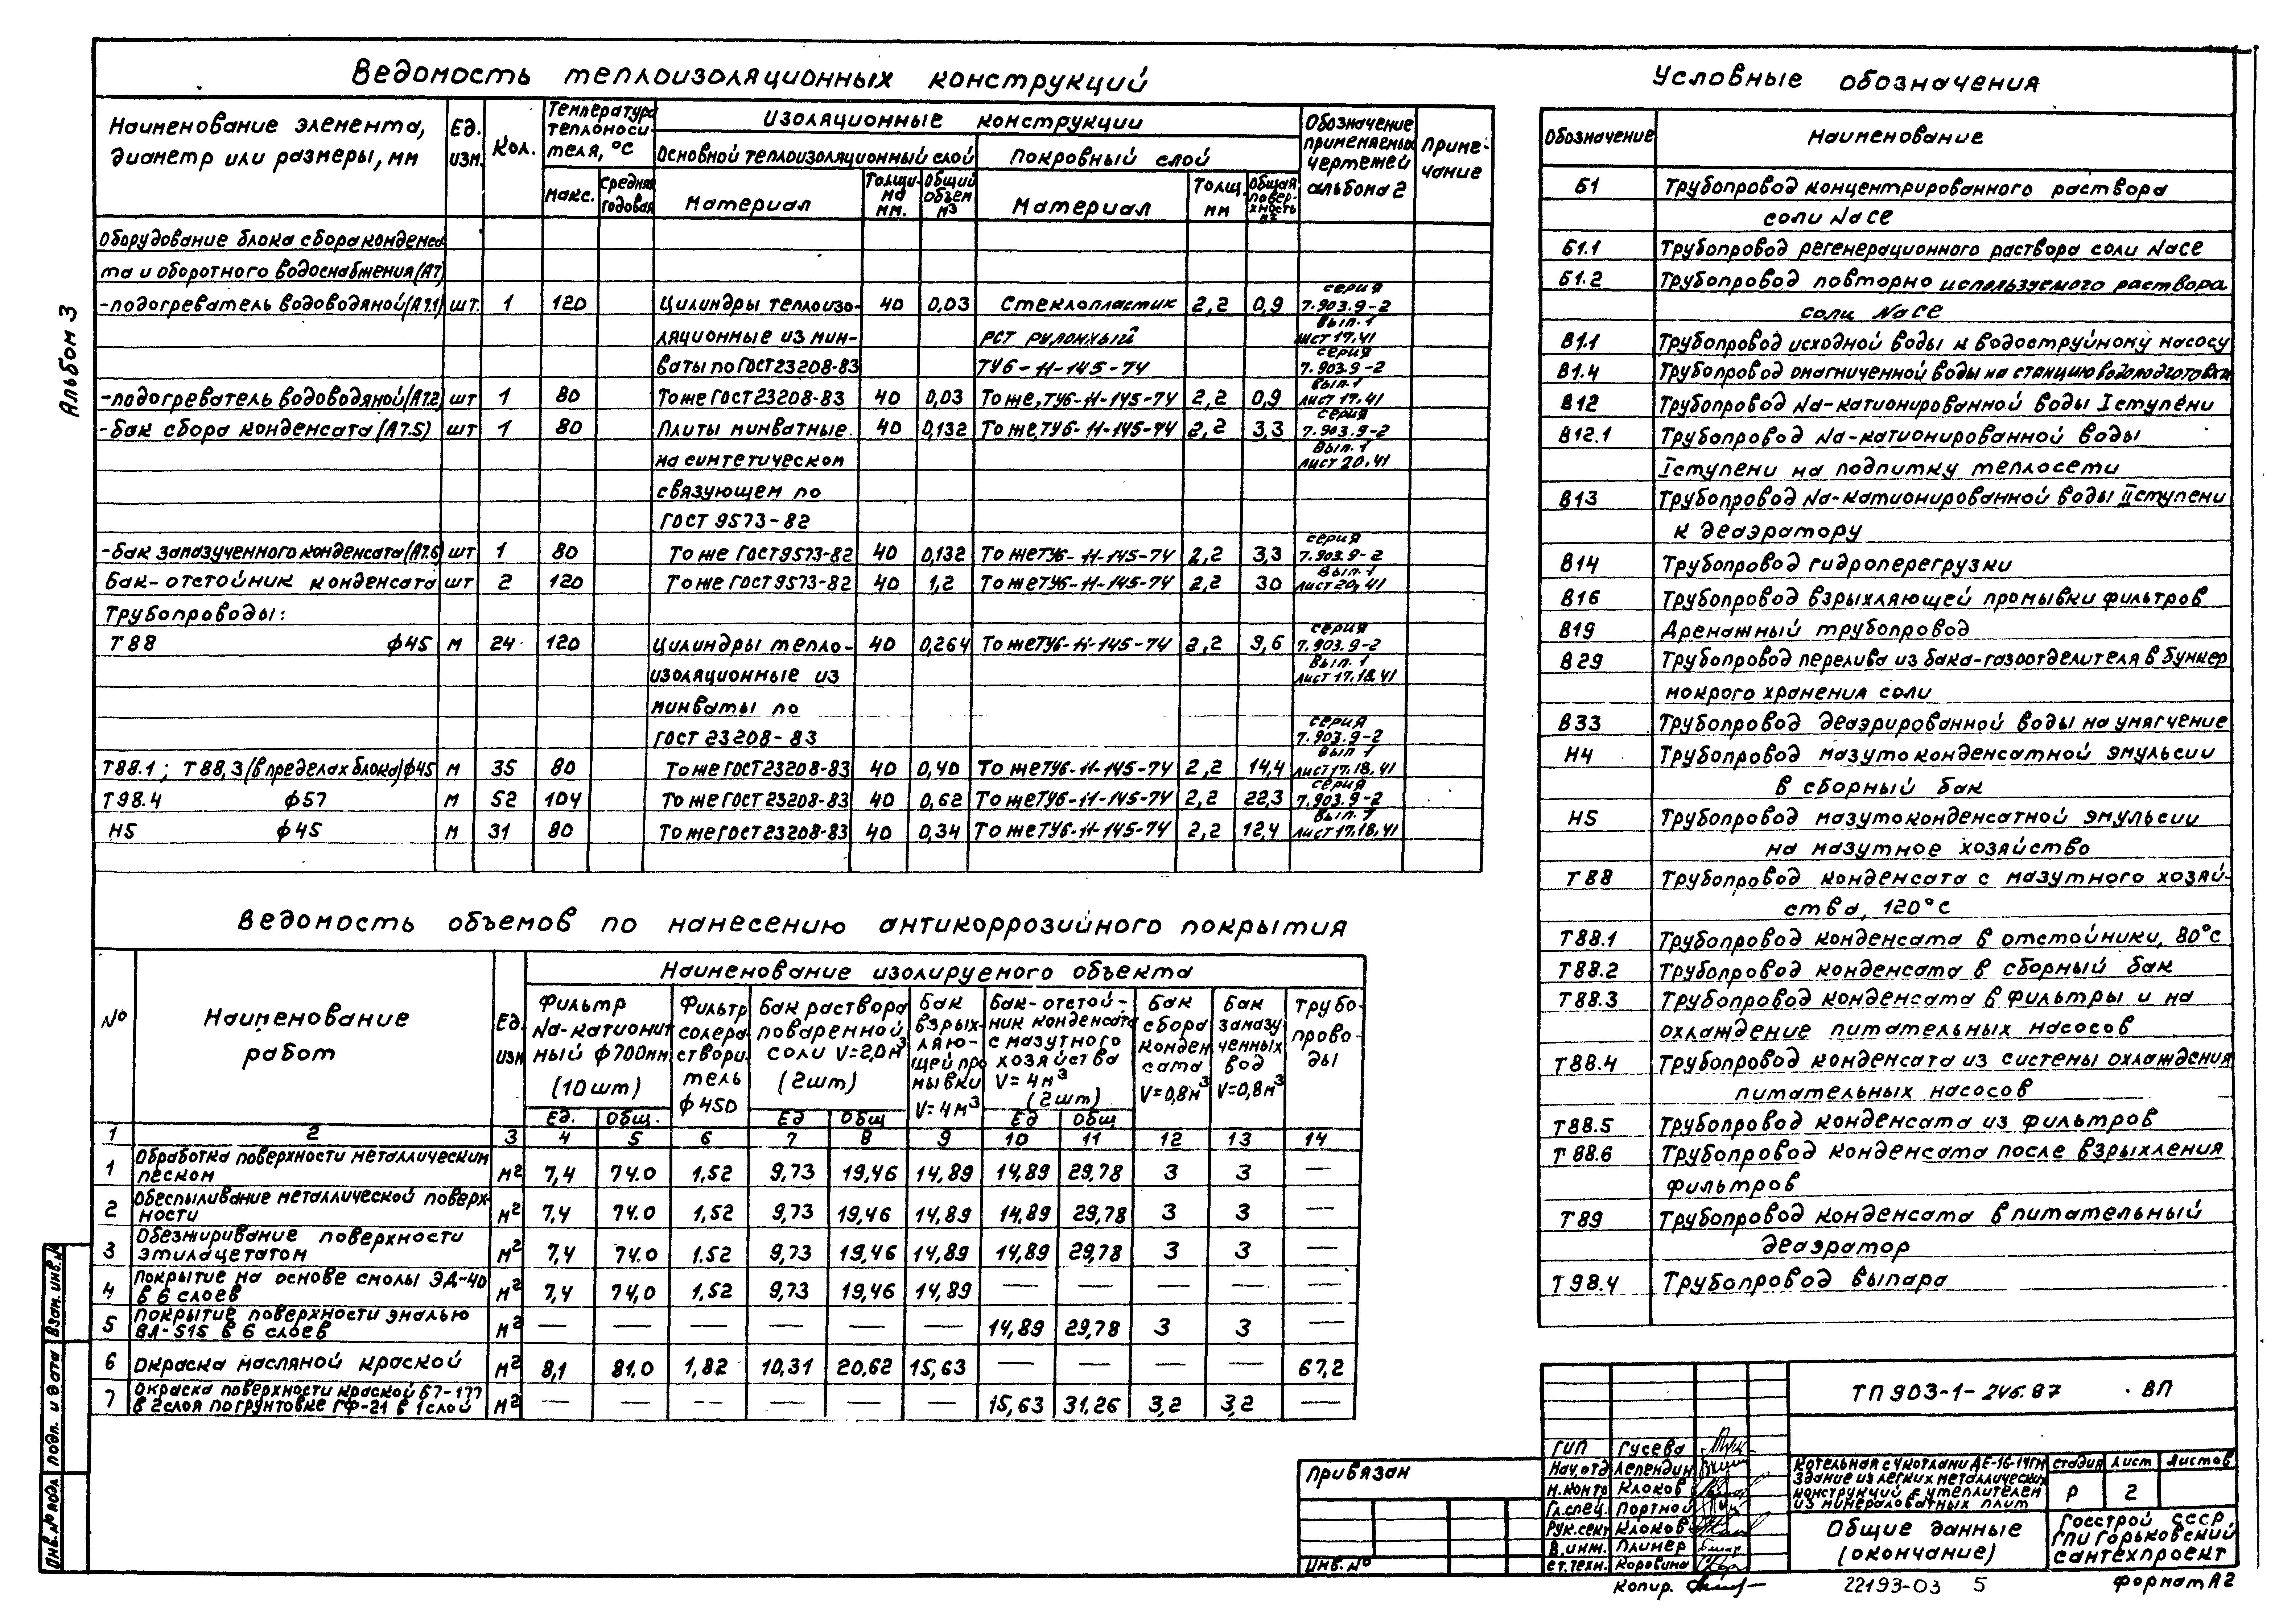 Альбом 3
Ведомость теплоизоляционных конструкций
Наименование элемента, диаметр или размеры, мм
Ед. изм.
Кол.
Температура теплоносителя, °С
Изоляционные конструкции
Обозначение применяемых чертежей альбона 2
Примечание
Основной теплоизоляционный слой
Покровный слой
Макс.
Средняя годовая
Материал
Толщина мм.
Общий объем м3
Материал
Толщ. мм
Общая поверхность м2
Оборудование блока сбора конденса-
та и оборотного водоснабжения (А7)
-подогреватель водоводяной (А7.1) шт. 1 120 Цилиндры теплоизо- 40 0,03 Стеклопластик 2,2 0,9 серия 7.903.9-2
ляционные из мин- РСТ рулонный вып. 1 лист 17,41
ваты по ГОСТ 23208-83 ТУ6-11-145-74 серия 7.903.9-2
-подогреватель водоводяной (А7.2) шт 1 80 То же ГОСТ 23208-83 40 0,03 То же, ТУ6-11-145-74 2,2 0,9 вып.1 лист 17,41
-бак сбора конденсата (А7.5) шт 1 80 Плиты минватные 40 0,132 То же, ТУ6-11-145-74 2,2 3,3 серия 7.903.9-2
на синтетическом Вып. 1 лист 20,41
связующем по
ГОСТ 9573-82
-бак замазученного конденсата (А7.6) шт 1 80 То же ГОСТ 9573-82 40 0,132 То же ТУ6-11-145-74 2,2 3,3 серия 7.903.9-2
Бак-отстойник конденсата шт 2 120 То же ГОСТ 9573-82 40 1,2 То же ТУ6-11-145-74 2,2 30 Вып. 1 лист 20,41
Трубопроводы:
Т88 ф45 м 24 120 Цилиндры тепло- 40 0,264 То же ТУ6-11-145-74 2,2 9,6 серия 7.903.9-2
изоляционные из Вып. 1 лист 17,18,41
минваты по
ГОСТ 23208-83 серия 7.903.9-2
Т88.1; Т88,3 (в пределах блока) ф45 м 35 80 То же ГОСТ 23208-83 40 0,40 То же ТУ6-11-145-74 2,2 14,4 Вып 1 лист 17,18,41
Т98.4 ф57 м 52 104 То же ГОСТ 23208-83 40 0,62 То же ТУ6-11-145-74 2,2 22,3 серия 7.903.9-2
Н5 ф45 м 31 80 То же ГОСТ 23208-83 40 0,34 То же ТУ6-11-145-74 2,2 12,4 Вып. 1 лист 17,18,41
Ведомость объемов по нанесению антикоррозийного покрытия
№
Наименование работ
Ед. изм
Наименование изолируемого объекта
Фильтр Na-катионитный ф700мм (10шт)
Фильтр солерастворитель ф450
Бак раствора поваренной соли V=2,0м3 (2шт)
Бак взрыхляющей промывки V=4м3
Бак-отстойник конденсата с мазутного хозяйства V=4м3 (2шт)
Бак сбора конденсата V=0,8м3
Бак замазученных вод V=0,8м3
Трубопроводы
Ед. Общ. Ед Общ Ед Общ
1 2 3 4 5 6 7 8 9 10 11 12 13 14
1 Обработка поверхности металлическим песком м2 7,4 74.0 1,52 9,73 19,46 14,89 14,89 29,78 3 3 —
2 Обеспыливание металлической поверхности м2 7,4 74.0 1,52 9,73 19,46 14,89 14,89 29,78 3 3 —
3 Обезжиривание поверхности этилацетатом м2 7,4 74.0 1.52 9,73 19,46 14,89 14,89 29,78 3 3 —
4 Покрытие на основе смолы ЭД-40 в 6 слоев м2 7,4 74,0 1,52 9,73 19,46 14,89 — — — — —
5 Покрытие поверхности эмалью ВЛ-515 в 6 слоев м2 — — — — — — 14,89 29,78 3 3 —
6 Окраска масляной краской м2 8,1 81.0 1,82 10,31 20,62 15,63 — — — — 67,2
7 Окраска поверхности краской БТ-177 в 2 слоя по грунтовке ГФ-21 в 1 слой м2 — — — — — — 15,63 31.26 3,2 3,2 —
Условные обозначения
Обозначение Наименование
Б1 Трубопровод концентрированного раствора
соли NaCe
Б1.1 Трубопровод регенерационного раствора соли NaCe
Б1.2 Трубопровод повторно используемого раствора
соли NaCe
В1.1 Трубопровод исходной воды к водоструйному насосу
В1.4 Трубопровод омагниченной воды на станцию водоподготовки
В12 Трубопровод Na-катионированной воды I ступени
В12.1 Трубопровод Na-катионированной воды
I ступени на подпитку теплосети
В13 Трубопровод Na-катионированной воды II ступени
к деаэратору
В14 Трубопровод гидроперегрузки
В16 Трубопровод взрыхляющей промывки фильтров
В19 Дренажный трубопровод
В29 Трубопровод перелива из бака-газоотделителя в бункер
мокрого хранения соли
В33 Трубопровод деаэрированной воды на умягчение
Н4 Трубопровод мазутоконденсатной эмульсии
в сборный бак
Н5 Трубопровод мазутоконденсатной эмульсии
на мазутное хозяйство
Т88 Трубопровод конденсата с мазутного хозяй-
ства, 120°С
Т88.1 Трубопровод конденсата в отстойники, 80°с
Т88.2 Трубопровод конденсата в сборный бак
Т88.3 Трубопровод конденсата в фильтры и на
охлаждение питательных насосов
Т88.4 Трубопровод конденсата из системы охлаждения
питательных насосов
Т88.5 Трубопровод конденсата из фильтров
Т88.6 Трубопровод конденсата после взрыхления
фильтров
Т89 Трубопровод конденсата в питательный
деаэратор
Т98.4 Трубопровод выпара
ТП 903-1-246.87 ВП
ГИП Гусева
Нач.отд Лепендин
Н.контр Клоков
Гл.спец. Портной
Рук.сект Клоков
В.инж. Плинер
ст.техн. Коровина
Котельная с 4 котлами ДЕ-16-14ГМ
Здание из легких металлических
конструкций с утеплителем
из минераловатных плит
стадия лист листов
Р 2
Общие данные
(окончание)
Госстрой СССР
ГПИ Горьковский
Сантехпроект
Привязан
Инв. №
Взам. инв. №
Подп. и дата
Инв. № подл
Копир.
22193-03 5
формат А2